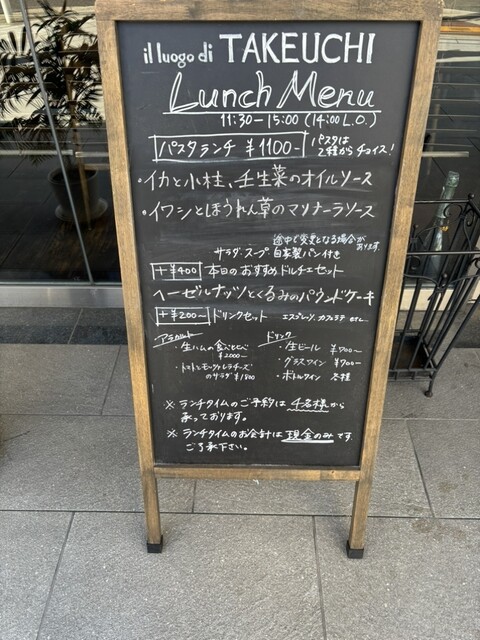 il luogo di TAKEUCHI
Lunch Menu
11:30-15:00 (14:00 L.O.)
パスタランチ ¥1100- パスタは
2種からチョイス!
・イカと小柱、壬生菜のオイルソース
・イワシとほうれん草のマリナーラソース
途中で変更となる場合が
あります
サラダ、スープ 自家製パン付き
+¥400 本日のおすすめドルチェセット
ヘーゼルナッツとくるみのパウンドケーキ
+¥200~ ドリンクセット エスプレッソ、カフェラテ etc..
アラカルト
・生ハムの食べくらべ
¥2000~
・トマトとモッツァレラチーズ
のサラダ ¥1800
ドリンク
・生ビール ¥700~
・グラスワイン ¥700~
・ボトルワイン 各種
※ ランチタイムのご予約は 4名様から
承っております。
※ ランチタイムのお会計は 現金のみです
ご了承下さい。